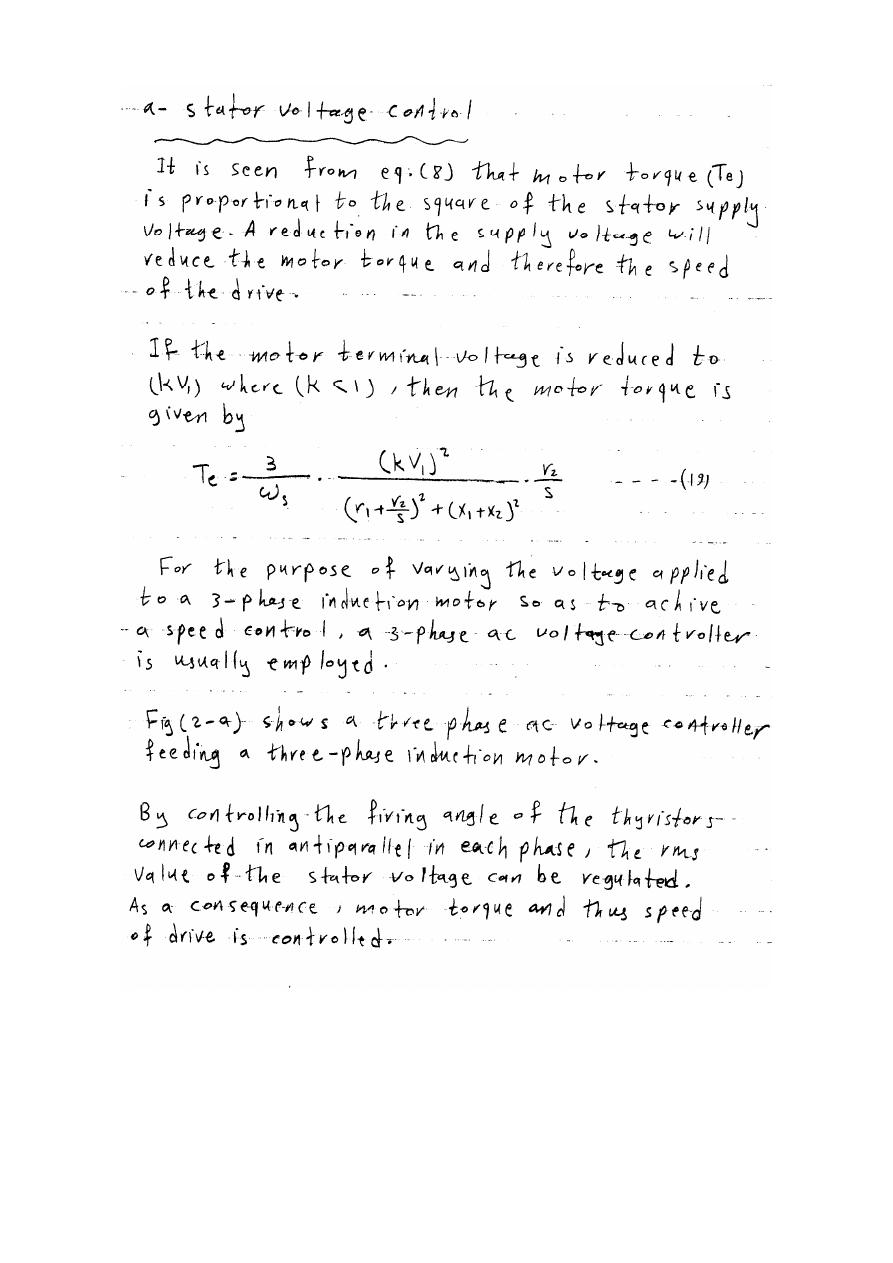 a- stator voltage control
It is seen from eq.(8) that motor torque (Te)
is proportional to the square of the stator supply
voltage. A reduction in the supply voltage will
reduce the motor torque and therefore the speed
of the drive.
If the motor terminal voltage is reduced to
(kV₁) where (k<1), then the motor torque is
given by
Te = 3/ωs · (kV₁)² / ((r₁+r₂/s)² + (x₁+x₂)²) · r₂/s ----(19)
For the purpose of varying the voltage applied
to a 3-phase induction motor so as to achive
a speed control, a 3-phase ac voltage controller
is usually employed.
Fig(2-a) shows a three phase ac voltage controller
feeding a three-phase induction motor.
By controlling the firing angle of the thyristors
connected in antiparallel in each phase, the rms
value of the stator voltage can be regulated.
As a consequence, motor torque and thus speed
of drive is controlled.